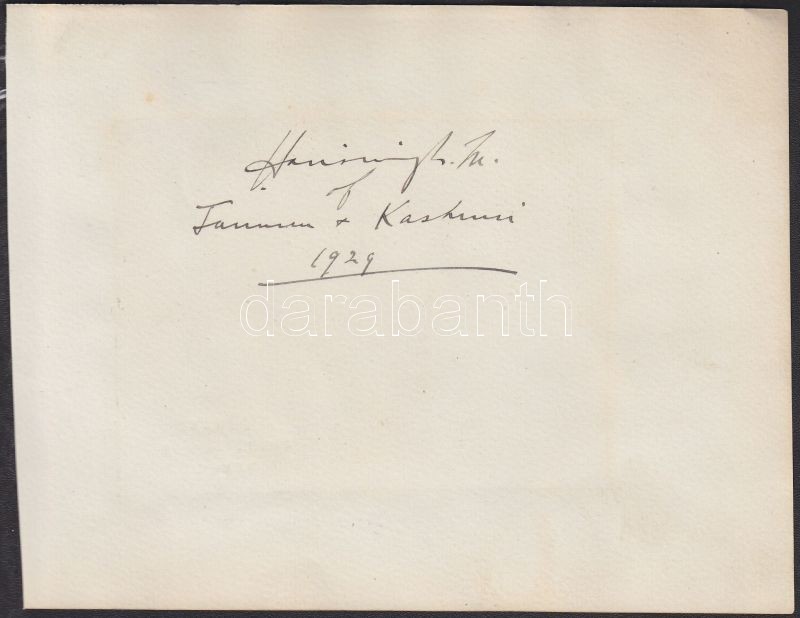 Harisingh. M.
of
Jammu + Kashmir
1929
darabanth